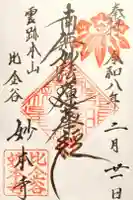 奉拝 令和八年 二月廿一日
南無妙法蓮華経
雲跡本山
比企谷 妙本寺
比企谷
妙本寺